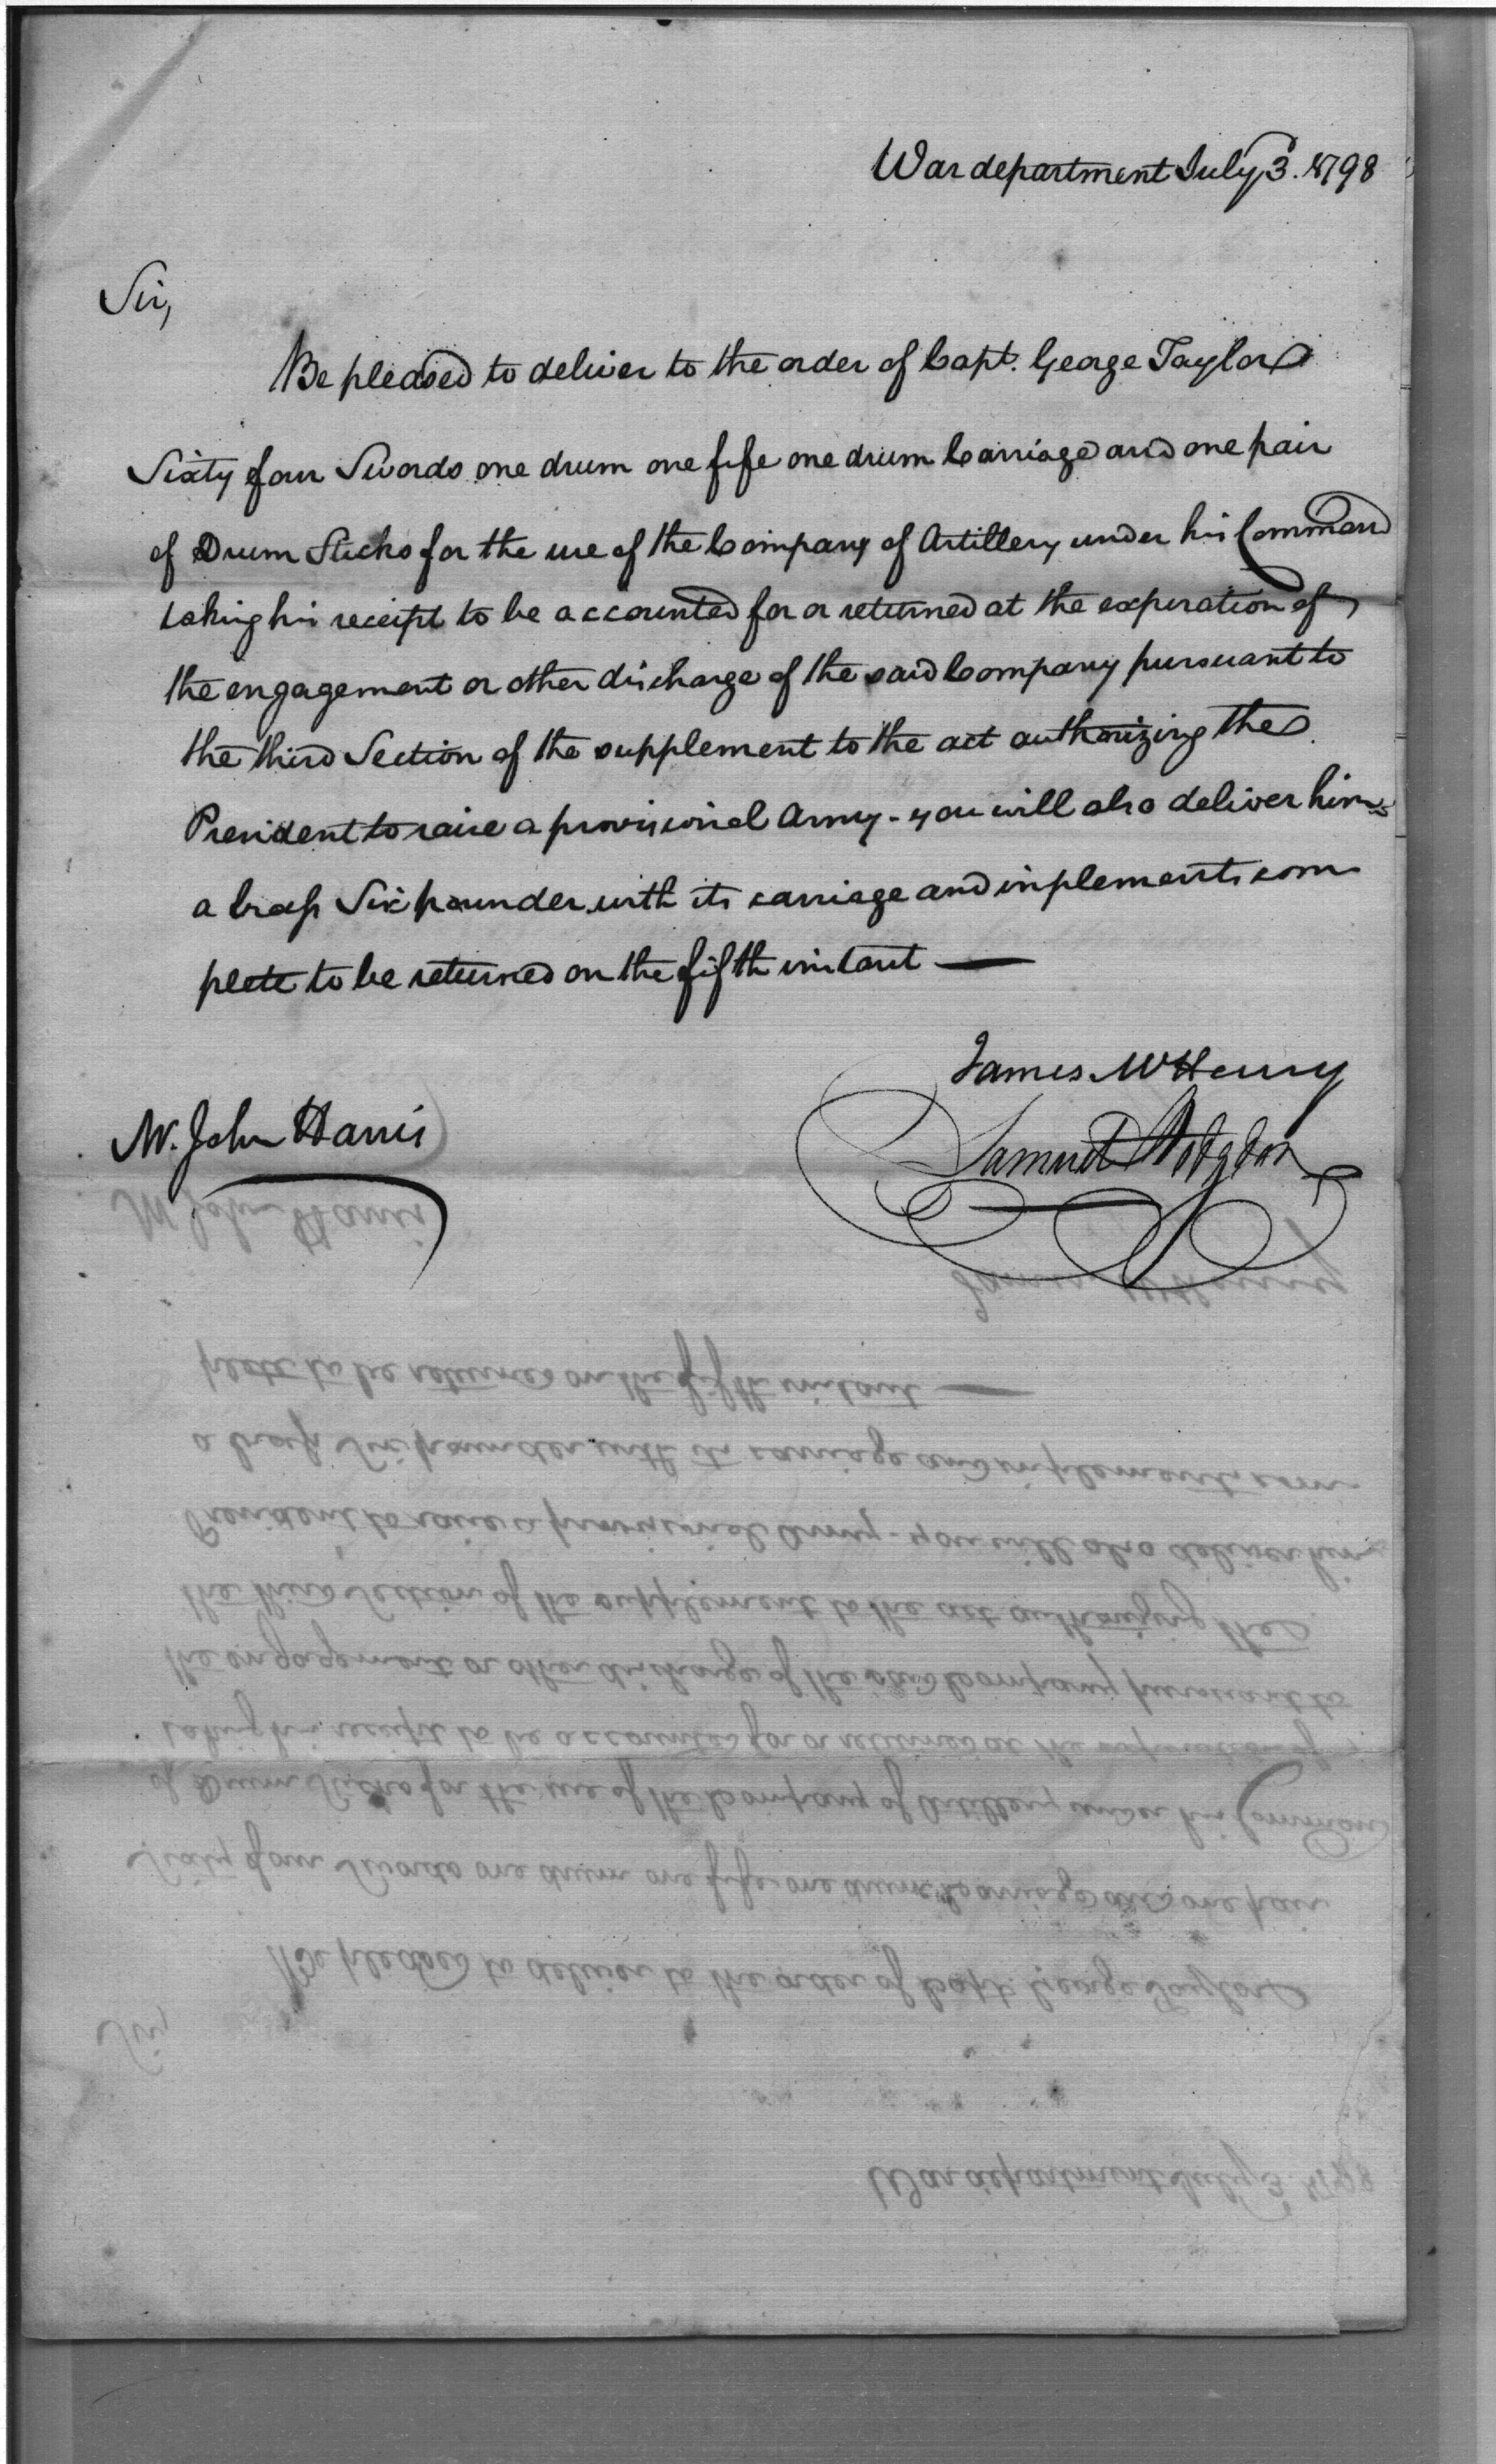 War department July 3. 1798
Sir,
Be pleased to deliver to the order of Capt. George Taylor
Sixty four Swords one drum one fife one drum Carriage and one pair
of Drum Sticks for the use of the Company of Artillery under his Command
taking his receipt to be accounted for or returned at the experation of
the engagement or other discharge of the said Company pursuant to
the third Section of the supplement to the act authorizing the
President to raise a provisional Army - you will also deliver him
a brass Six pounder with its carriage and implements com
plete to be returned on the fifth instant —
James McHenry
Samuel Hodgdon
Mr. John Harris